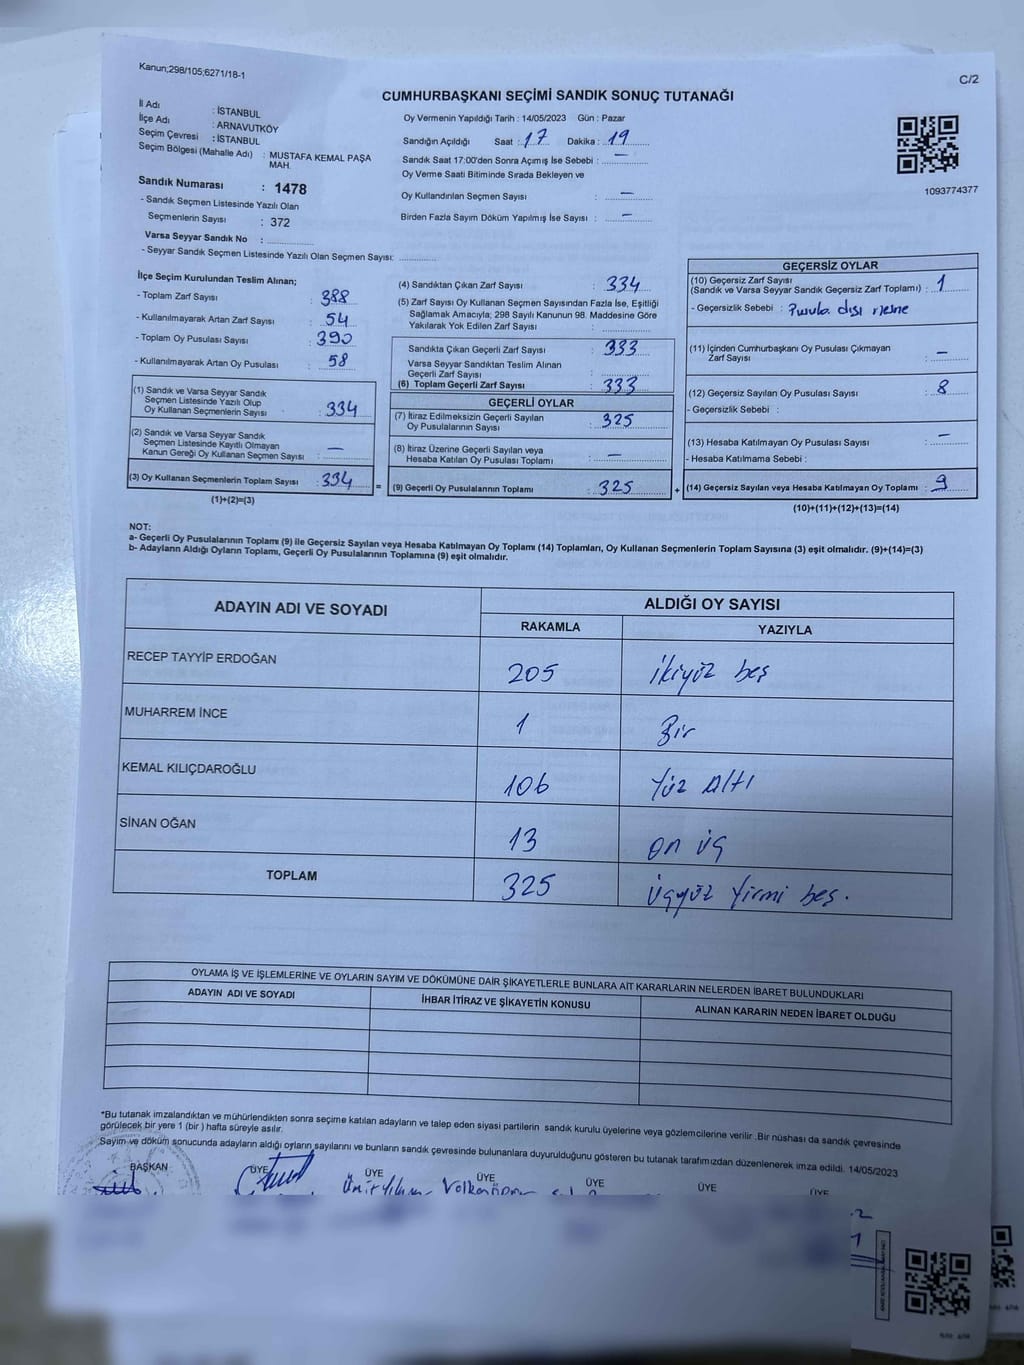 Kanun;298/105;6271/18-1
C/2
CUMHURBAŞKANI SEÇİMİ SANDIK SONUÇ TUTANAĞI
İl Adı : İSTANBUL
İlçe Adı : ARNAVUTKÖY
Seçim Çevresi : İSTANBUL
Seçim Bölgesi (Mahalle Adı) : MUSTAFA KEMAL PAŞA MAH.
Sandık Numarası : 1478
- Sandık Seçmen Listesinde Yazılı Olan
Seçmenlerin Sayısı : 372
Varsa Seyyar Sandık No : ..............
- Seyyar Sandık Seçmen Listesinde Yazılı Olan Seçmen Sayısı: ..............
Oy Vermenin Yapıldığı Tarih : 14/05/2023 Gün : Pazar
Sandığın Açıldığı Saat : 17 Dakika : 19
Sandık Saat 17:00'den Sonra Açımış İse Sebebi : —
Oy Verme Saati Bitiminde Sırada Bekleyen ve
Oy Kullandırılan Seçmen Sayısı : —
Birden Fazla Sayım Döküm Yapılmış İse Sayısı : —
1093774377
İlçe Seçim Kurulundan Teslim Alınan;
- Toplam Zarf Sayısı : 388
- Kullanılmayarak Artan Zarf Sayısı : 54
- Toplam Oy Pusulası Sayısı : 390
- Kullanılmayarak Artan Oy Pusulası : 58
(1) Sandık ve Varsa Seyyar Sandık
Seçmen Listesinde Yazılı Olup
Oy Kullanan Seçmenlerin Sayısı : 334
(2) Sandık ve Varsa Seyyar Sandık
Seçmen Listesinde Kayıtlı Olmayan
Kanun Gereği Oy Kullanan Seçmen Sayısı : —
(3) Oy Kullanan Seçmenlerin Toplam Sayısı : 334
(1)+(2)=(3)
(4) Sandıktan Çıkan Zarf Sayısı : 334
(5) Zarf Sayısı Oy Kullanan Seçmen Sayısından Fazla İse, Eşitliği
Sağlamak Amacıyla; 298 Sayılı Kanunun 98. Maddesine Göre
Yakılarak Yok Edilen Zarf Sayısı :
Sandıkta Çıkan Geçerli Zarf Sayısı : 333
Varsa Seyyar Sandıktan Teslim Alınan
Geçerli Zarf Sayısı :
(6) Toplam Geçerli Zarf Sayısı : 333
GEÇERLİ OYLAR
(7) İtiraz Edilmeksizin Geçerli Sayılan
Oy Pusulalarının Sayısı : 325
(8) İtiraz Üzerine Geçerli Sayılan veya
Hesaba Katılan Oy Pusulası Toplamı : —
= (9) Geçerli Oy Pusulalarının Toplamı : 325
GEÇERSİZ OYLAR
(10) Geçersiz Zarf Sayısı
(Sandık ve Varsa Seyyar Sandık Geçersiz Zarf Toplamı) : 1
- Geçersizlik Sebebi : Pusula dışı
(11) İçinden Cumhurbaşkanı Oy Pusulası Çıkmayan
Zarf Sayısı : —
(12) Geçersiz Sayılan Oy Pusulası Sayısı : 8
- Geçersizlik Sebebi :
(13) Hesaba Katılmayan Oy Pusulası Sayısı : —
- Hesaba Katılmama Sebebi :
+ (14) Geçersiz Sayılan veya Hesaba Katılmayan Oy Toplamı : 9
(10)+(11)+(12)+(13)=(14)
NOT:
a- Geçerli Oy Pusulalarının Toplamı (9) ile Geçersiz Sayılan veya Hesaba Katılmayan Oy Toplamı (14) Toplamları, Oy Kullanan Seçmenlerin Toplam Sayısına (3) eşit olmalıdır. (9)+(14)=(3)
b- Adayların Aldığı Oyların Toplamı, Geçerli Oy Pusulalarının Toplamına (9) eşit olmalıdır.
ADAYIN ADI VE SOYADI ALDIĞI OY SAYISI
RAKAMLA YAZIYLA
RECEP TAYYİP ERDOĞAN 205 ikiyüz beş
MUHARREM İNCE 1 Bir
KEMAL KILIÇDAROĞLU 106 Yüz Altı
SİNAN OĞAN 13 on üç
TOPLAM 325 üçyüz Yirmi beş.
OYLAMA İŞ VE İŞLEMLERİNE VE OYLARIN SAYIM VE DÖKÜMÜNE DAİR ŞİKAYETLERLE BUNLARA AİT KARARLARIN NELERDEN İBARET BULUNDUKLARI
ADAYIN ADI VE SOYADI İHBAR İTİRAZ VE ŞİKAYETİN KONUSU ALINAN KARARIN NEDEN İBARET OLDUĞU
*Bu tutanak imzalandıktan ve mühürlendikten sonra seçime katılan adayların ve talep eden siyasi partilerin sandık kurulu üyelerine veya gözlemcilerine verilir .Bir nüshası da sandık çevresinde
görülecek bir yere 1 (bir ) hafta süreyle asılır.
Sayım ve döküm sonucunda adayların aldığı oyların sayılarını ve bunların sandık çevresinde bulunanlara duyurulduğunu gösteren bu tutanak tarafımızdan düzenlenerek imza edildi. 14/05/2023
BAŞKAN ÜYE ÜYE ÜYE ÜYE ÜYE ÜYE